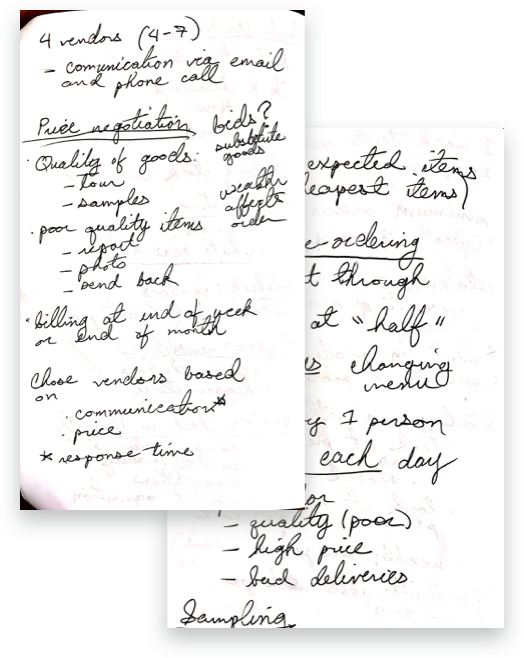 4 vendors (4-7)
- comunication via email
and phone call
Price negotiation bids?
· Quality of goods:
- tour
- samples
substitute
goods
weather
affects
order
· poor quality items
- report
- photo
- send back
· billing at end of week
or end of month
Chose vendors based
on
· communication*
· price
* response time
expected items
eapest items)
e ordering
t through
at "half"
changing
menu
y 1 person
each day
or
- quality (poor)
- high price
- bad deliveries
Sampling